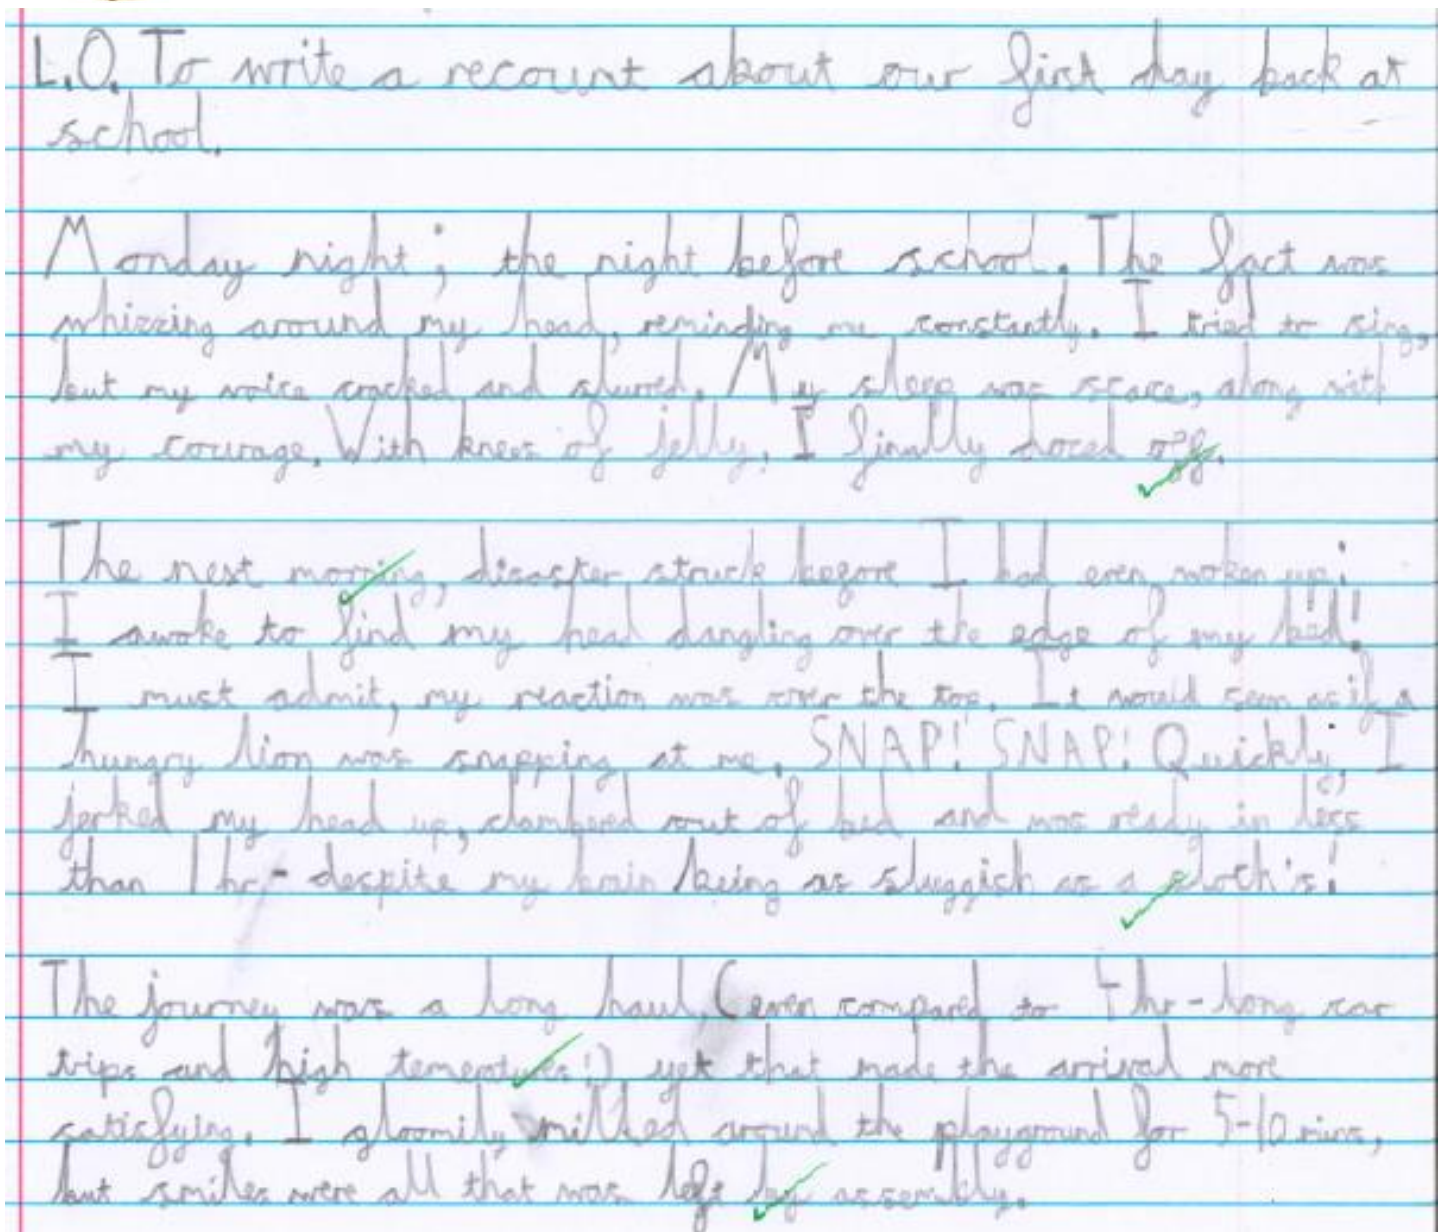 L.O. To write a recount about our first day back at
school.
Monday night; the night before school. The fact was
whizzing around my head, reminding me constantly. I tried to sing,
but my voice cracked and slurred. My sleep was scace, along with
my courage. With knees of jelly, I finally dozed off.
The next morning, disaster struck before I had even woken up;
I awoke to find my head dangling over the edge of my bed!
I must admit, my reaction was over the top. It would seem as if a
hungry lion was snapping at me. SNAP! SNAP! Quickly, I
jerked my head up, clambered out of bed and was ready in less
than 1 hr - despite my brain being as sluggish as a sloth's!
The journey was a long haul (even compared to 4hr-long car
trips and high temeratures!) yet that made the arrival more
satisfying. I gloomily milled around the playground for 5-10 mins,
but smiles were all that was left by assembly.